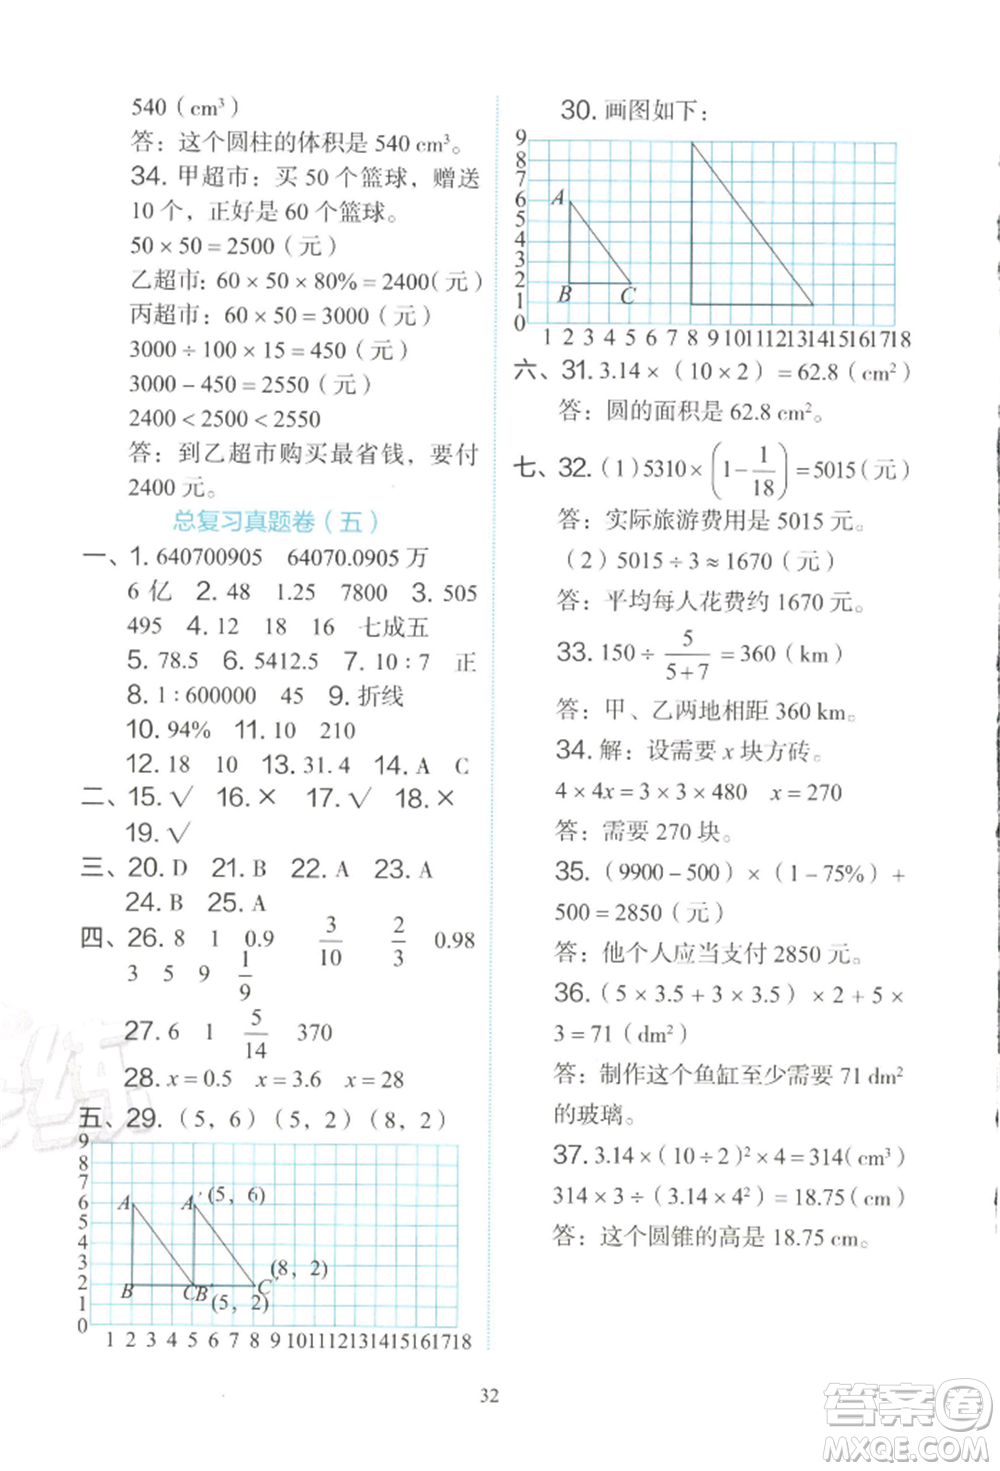 540（cm³）
答：这个圆柱的体积是 540 cm³。
34. 甲超市：买 50 个篮球，赠送
10 个，正好是 60 个篮球。
50 × 50 = 2500（元）
乙超市：60 × 50 × 80% = 2400(元)
丙超市：60 × 50 = 3000（元）
3000 ÷ 100 × 15 = 450（元）
3000 – 450 = 2550（元）
2400 < 2500 < 2550
答：到乙超市购买最省钱，要付
2400 元。
总复习真题卷（五）
一、1. 640700905　64070.0905 万
6 亿　2. 48　1.25　7800　3. 505
495　4. 12　18　16　七成五
5. 78.5　6. 5412.5　7. 10 : 7　正
8. 1 : 600000　45　9. 折线
10. 94%　11. 10　210
12. 18　10　13. 31.4　14. A　C
二、15. √　16. ×　17. √　18. ×
19. √
三、20. D　21. B　22. A　23. A
24. B　25. A
四、26. 8　1　0.9　3/10　2/3　0.98
3　5　9　1/9
27. 6　1　5/14　370
28. x = 0.5　x = 3.6　x = 28
五、29.（5，6）（5，2）（8，2）
9
8
7
6 A A′ (5，6)
5
4
3 (8，2)
2 B CB′ C′
1 (5，2)
0
1 2 3 4 5 6 7 8 9101112131415161718
30. 画图如下：
9
8
7
6 A
5
4
3
2 B C
1
0
1 2 3 4 5 6 7 8 9101112131415161718
六、31. 3.14 ×（10 × 2）= 62.8（cm²）
答：圆的面积是 62.8 cm²。
七、32.（1）5310 × (1 – 1/18) = 5015（元）
答：实际旅游费用是 5015 元。
（2）5015 ÷ 3 ≈ 1670（元）
答：平均每人花费约 1670 元。
33. 150 ÷ 5/(5 + 7) = 360（km）
答：甲、乙两地相距 360 km。
34. 解：设需要 x 块方砖。
4 × 4x = 3 × 3 × 480　x = 270
答：需要 270 块。
35.（9900 – 500）×（1 – 75%）+
500 = 2850（元）
答：他个人应当支付 2850 元。
36.（5 × 3.5 + 3 × 3.5）× 2 + 5 ×
3 = 71（dm²）
答：制作这个鱼缸至少需要 71 dm²
的玻璃。
37. 3.14 ×（10 ÷ 2）² × 4 = 314(cm³)
314 × 3 ÷（3.14 × 4²）= 18.75(cm)
答：这个圆锥的高是 18.75 cm。
32
答案卷
MXQE.COM